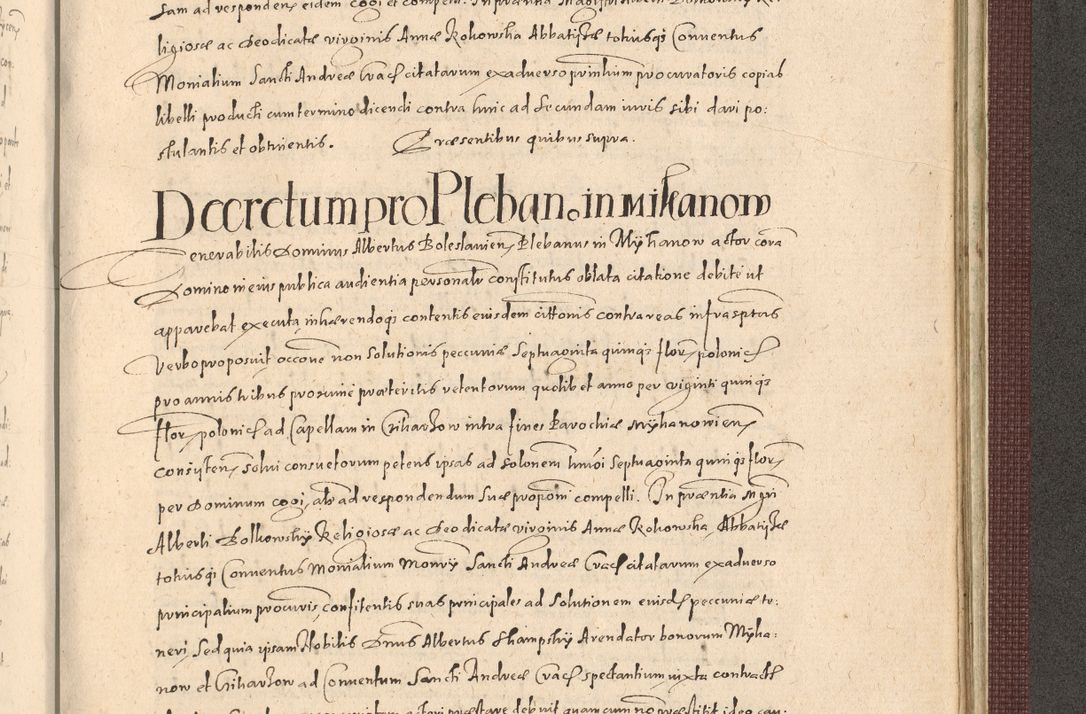 sam ad respondend eidem cogi et compelli. In præntia
ligiosæ ac Deodicatæ virginis Annæ Kokowska Abbatissæ totiusq; Conventus
Monialium Sancti Andreæ Crac citatarum ex adverso prinlium procuratoris copias
libelli producti cum termino dicendi contra hinc ad secundam iuris sibi dari po:
stulantis et obtinentis. Præsentibus quibus supra.
Decretum pro Pleban. in Mikanow
Venerabilis Dominus Albertus Boleslavien, Plebanus in Mÿkanow actor corā
Domino in eius publica audientia personalr constitutus oblata citatione debite ut
apparebat executa, inhærendoq; contentis eiusdem cittonis contra reas infrasptas
verbo proposuit occōne non solutionis peccuniæ septuaginta quinq; flor, polonic
pro annis tribus proxime præteritis retentorum quolibet anno per viginti quinq;
flor, polonic ad Capellam in Cziharzow intra fines Parochiæ Mÿkanowien,
consisten, solvi consuetorum petens ipsas ad solonem hmōi septuaginta quinq; flor,
per Dominum cogi, alr ad respondendum suæ proponi compelli. In præntia Mgri
Alberti Bolkowskÿ Religiosæ ac Deodicatæ virginis Annæ Kokowska Abbatissæ
totiusq; Conventus Monialium Monrÿ Sancti Andreæ Crac citatarum ex adverso
principalium procuris, confitentis suas principales ad solutionem eiusd, peccuniæ te:
neri, sed quia ipsam Nobilis Dnus Albertus Skampskÿ Arendator bonorum Mÿka:
now et Czikarzow ad Conventum Sancti Andreæ Crac spectantium iuxta contract
actori præstare debuit quam cum non præstitit ideo cau: